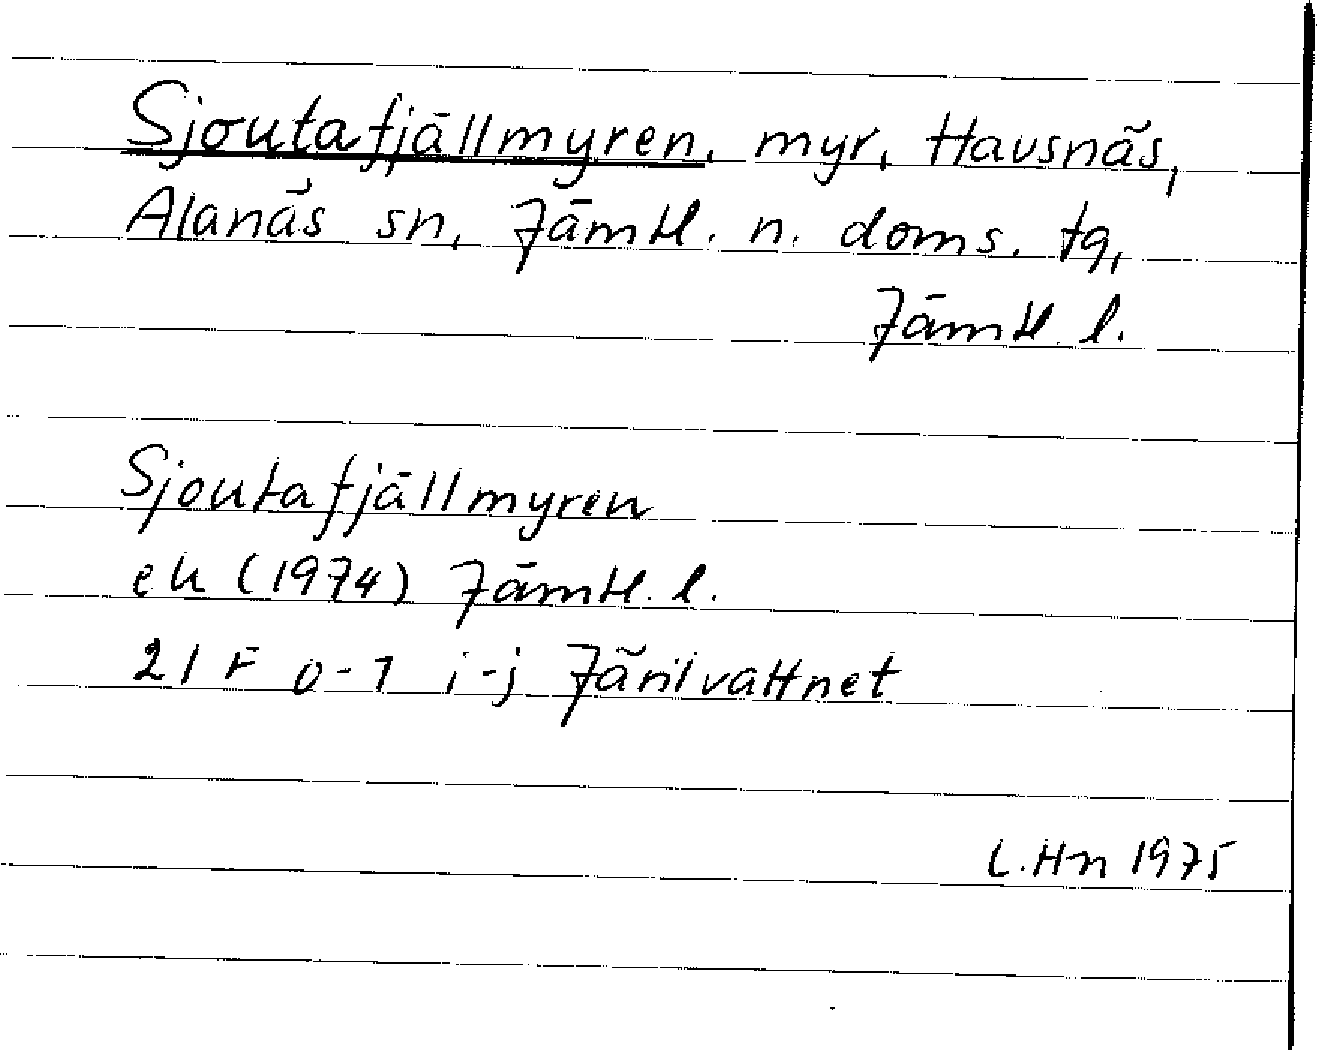 Sjoutafjällmyren, myr, Havsnäs,
Alanäs sn, Jämtl. n. doms. tg,
Jämtl. l.
Sjoutafjällmyren
ek (1974) Jämtl. l.
21 F 0-1 i-j Järilvattnet
L. Hn 1975